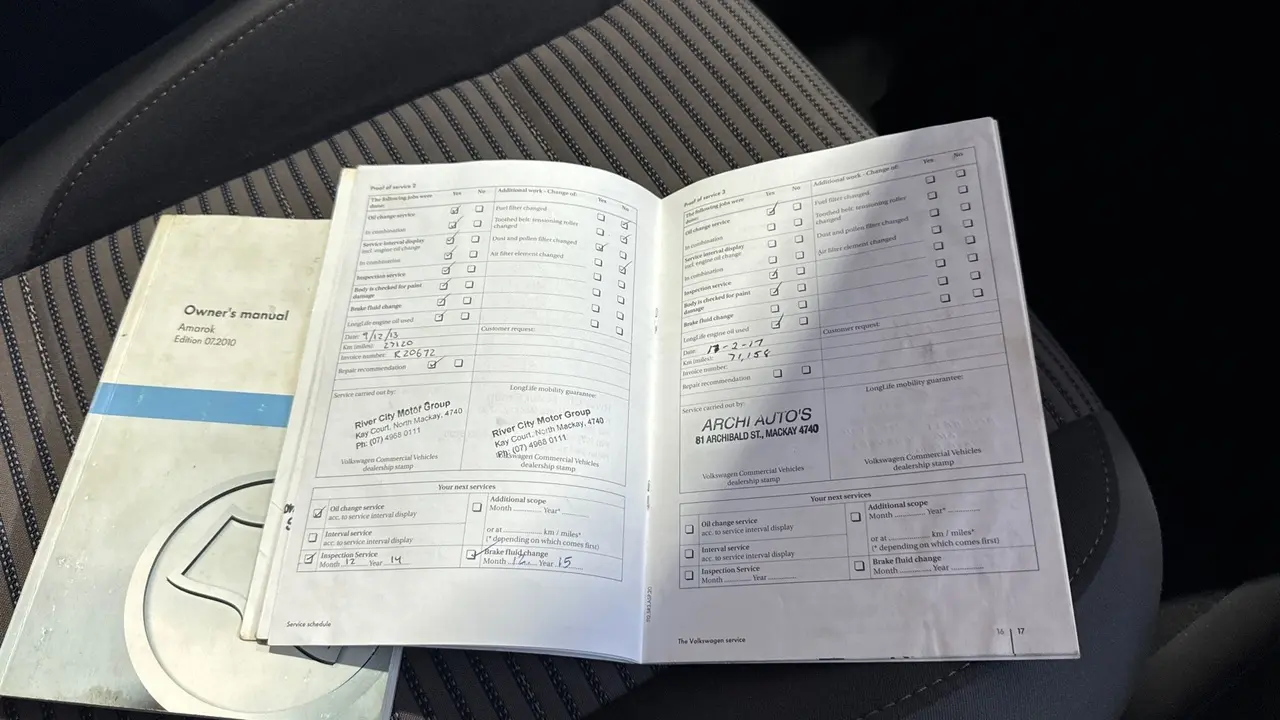 Owner's manual
Amarok
Edition 07.2010
Proof of service 2
The following jobs were done: Yes No Additional work - Change of: Yes No
Oil change service Fuel filter changed
In combination Toothed belt, tensioning roller changed
Service interval display incl. engine oil change Dust and pollen filter changed
In combination Air filter element changed
Inspection service
Body is checked for paint damage
Brake fluid change
LongLife engine oil used Customer request:
Date: 9/12/13
Km (miles): 27120
Invoice number: R20672
Repair recommendation
Service carried out by: LongLife mobility guarantee:
River City Motor Group
Kay Court, North Mackay, 4740
Ph: (07) 4968 0111
River City Motor Group
Kay Court, North Mackay, 4740
Ph: (07) 4968 0111
Volkswagen Commercial Vehicles
dealership stamp
Volkswagen Commercial Vehicles
dealership stamp
Your next services
Oil change service
acc. to service interval display
Interval service
acc. to service interval display
Inspection Service
Month 12 Year 14
Additional scope
Month ............ Year* ............
or at ............ km / miles*
(* depending on which comes first)
Brake fluid change
Month 12 Year 15
Service schedule
Proof of service 3
The following jobs were done: Yes No Additional work - Change of: Yes No
Oil change service Fuel filter changed
In combination Toothed belt, tensioning roller changed
Service interval display incl. engine oil change Dust and pollen filter changed
In combination Air filter element changed
Inspection service
Body is checked for paint damage
Brake fluid change
LongLife engine oil used Customer request:
Date: -2-17
Km (miles): 71,158
Invoice number:
Repair recommendation
Service carried out by: LongLife mobility guarantee:
ARCHI AUTO'S
81 ARCHIBALD ST., MACKAY 4740
Volkswagen Commercial Vehicles
dealership stamp
Volkswagen Commercial Vehicles
dealership stamp
Your next services
Oil change service
acc. to service interval display
Interval service
acc. to service interval display
Inspection Service
Month ............ Year ............
Additional scope
Month ............ Year* ............
or at ............ km / miles*
(* depending on which comes first)
Brake fluid change
Month ............ Year ............
The Volkswagen service
16 17